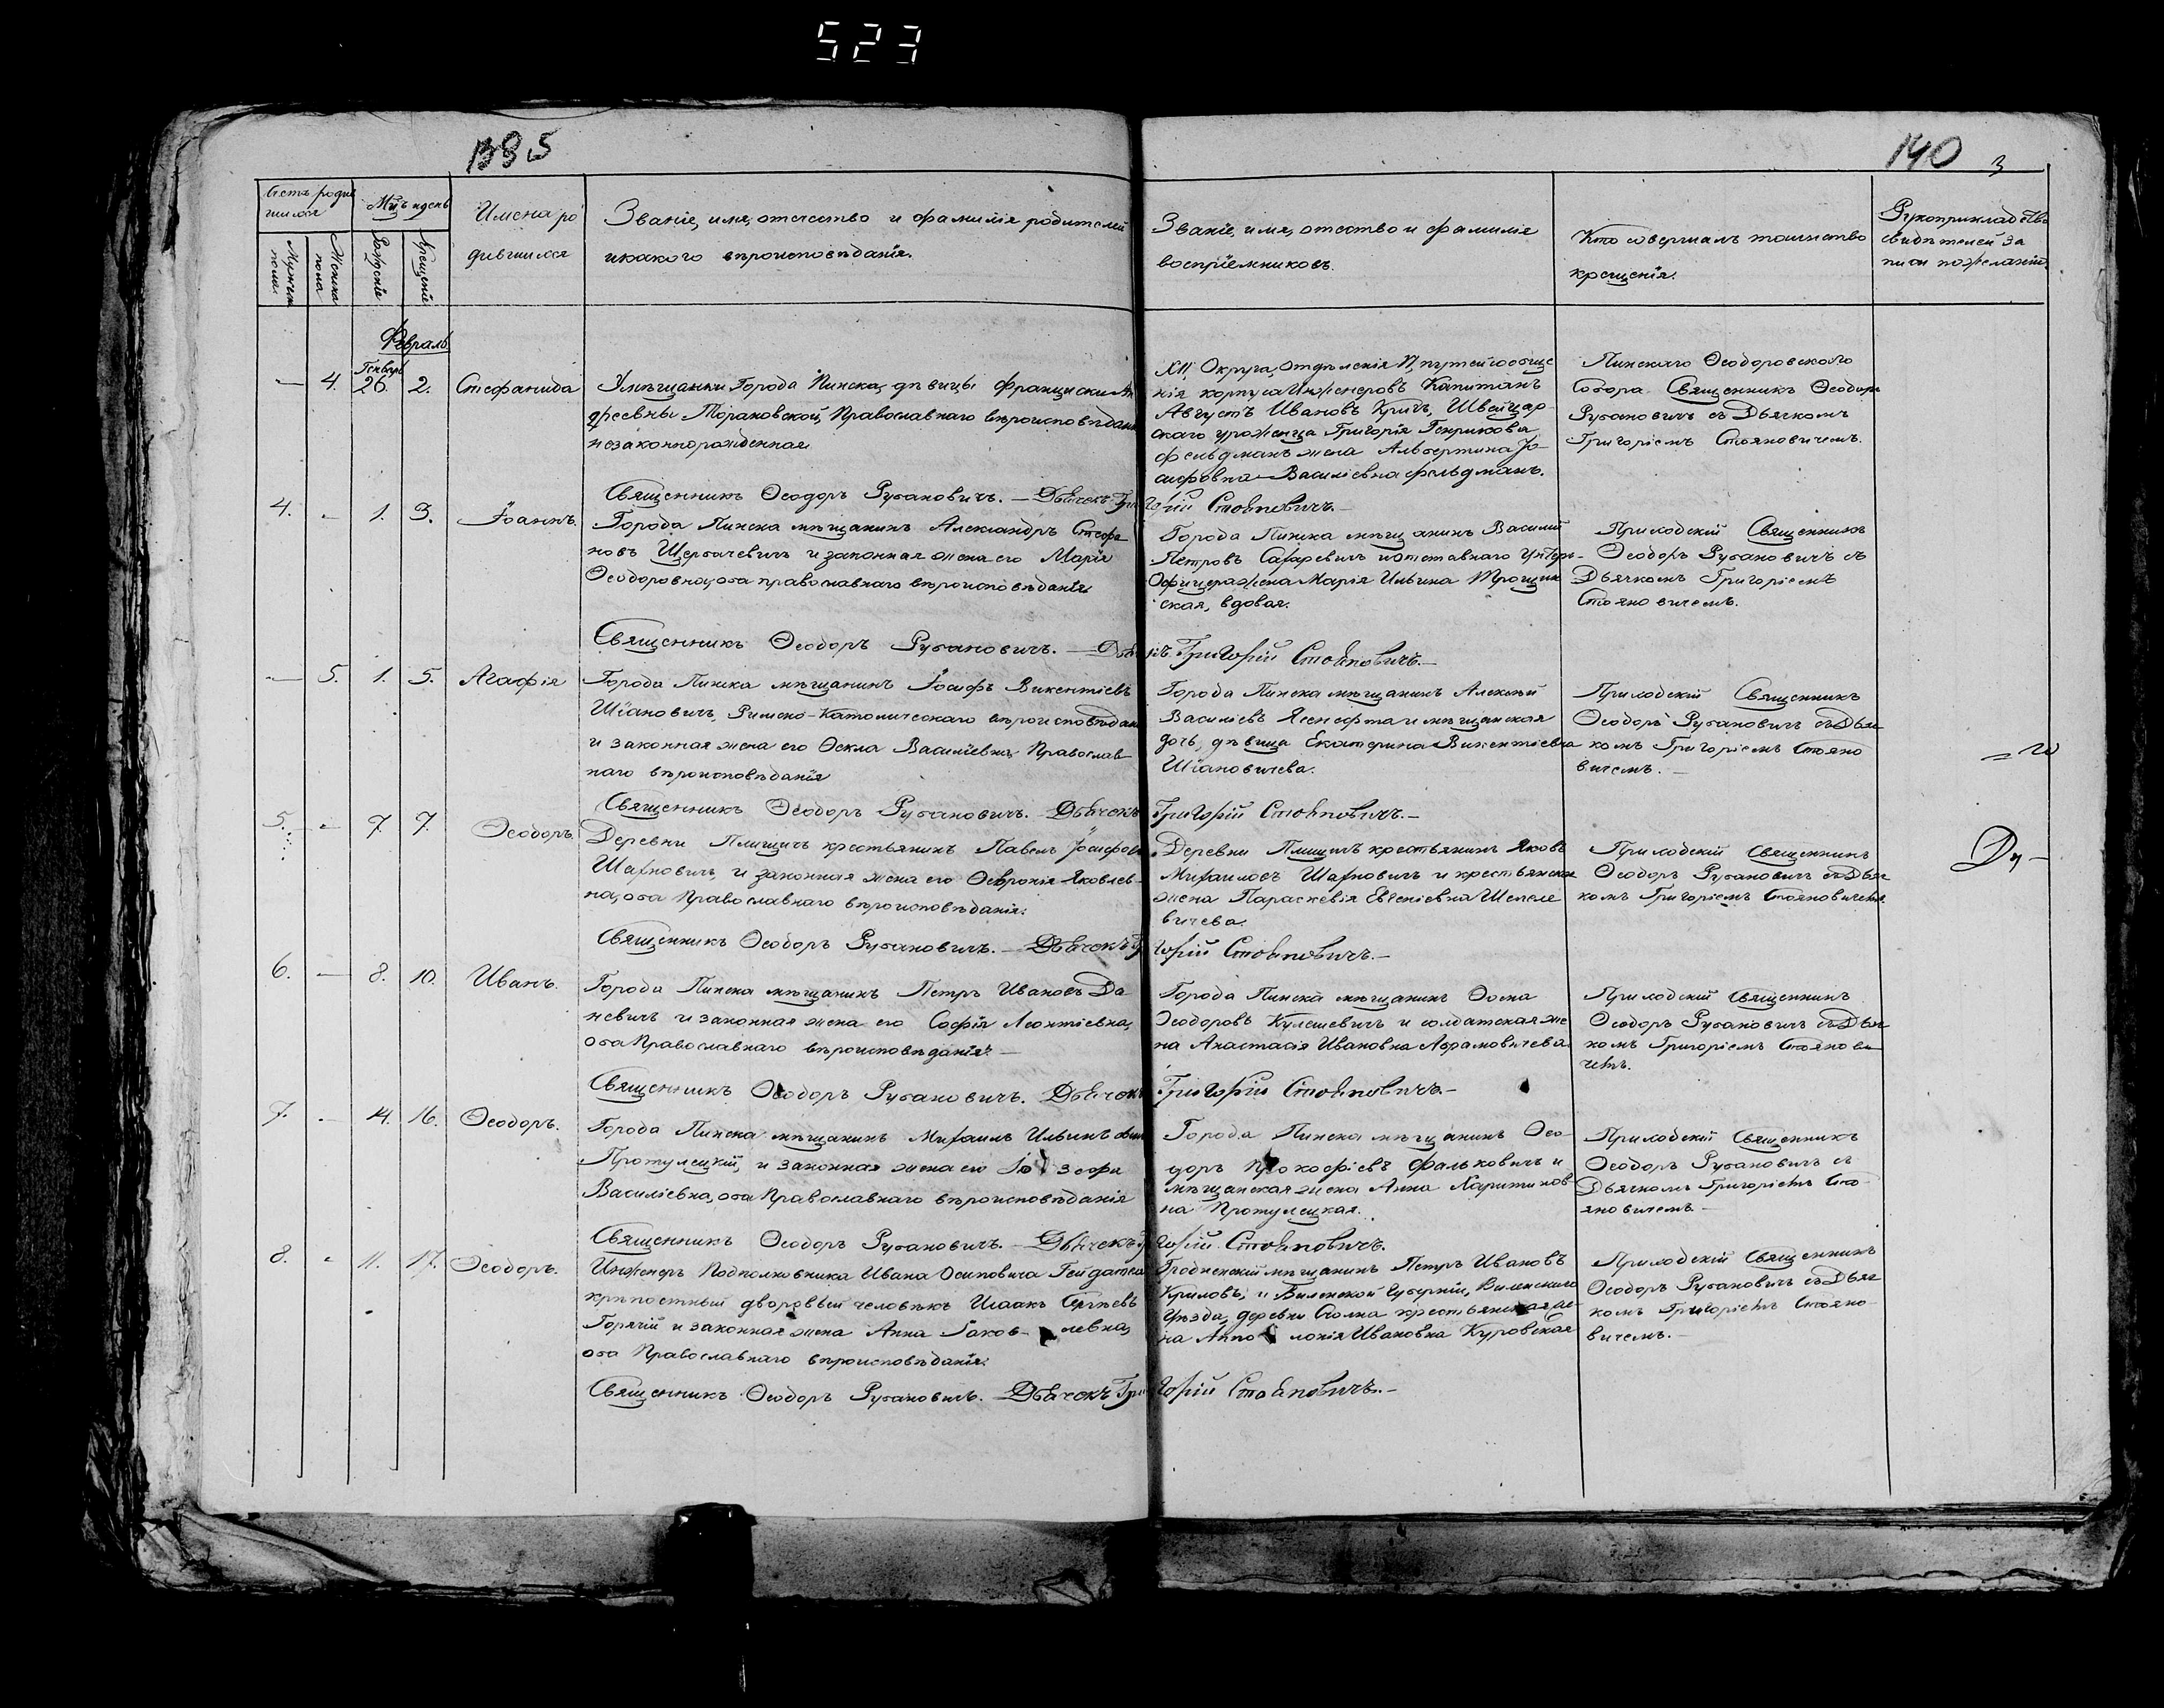 523
1385
140 3
Счетъ роди
вшихся
Мцъ и день
Имена ро
дившихся
Званіе, имя, отчество и фамилія родителей
и какого вѣроисповѣданія.
Мужска
пола
Женска
пола
Рожденіе
Крещеніе
Званіе, имя, отчество и фамилія
воспріемниковъ.
Кто совершалъ таинство
крещенія.
Рукоприкладство
свидѣтелей за
писи по желанію.
Февраль
Генварь
— 4. 26. 2. Стефанида
У мѣщанки Города Пинска, дѣвицы Франциски Ан
дреевны Тарановской, Православнаго вѣроисповѣданія
незаконнорожденная
XII Округа, отдѣленія П, путей сообще
нія корпуса Инженеровъ Капитанъ
Августъ Ивановъ Швейцар
скаго уроженца Григорія Генрихова
Фельдманъ жена Альбертина Іо-
сифовна — Василіевна Фельдманъ.
Пинскаго Ѳеодоровскаго
Собора Священникъ Ѳеодоръ
Рубановичъ съ Дьячкомъ
Григоріемъ Стояновичемъ.
Священникъ Ѳеодоръ Рубановичъ. — Дьячекъ Григорій Стояновичъ. —
4. - 1. 3. Іоаннъ.
Города Пинска мѣщанинъ Александръ Стефа
новъ Щербачевичъ и законная жена его Марія
Ѳеодоровна, оба православнаго вѣроисповѣданія.
Города Пинска мѣщанинъ Василій
Петровъ Сафаревичъ и отставнаго Унтеръ-
Офицера жена Марія Ильина Трощин
ская, вдова.
Приходскій Священникъ
Ѳеодоръ Рубановичъ съ
Дьячкомъ Григоріемъ
Стояновичемъ.
Священникъ Ѳеодоръ Рубановичъ. — Дьячекъ Григорій Стояновичъ. —
— 5. 1. 5. Агафія
Города Пинска мѣщанинъ Іосифъ Викентіевъ
Шіановичъ, Римско-Католическаго вѣроисповѣдан
и законная жена его Ѳекла Василіевна, Православ
наго вѣроисповѣданія
Города Пинска мѣщанинъ Алексѣй
Василіевъ и мѣщанская
дочь, дѣвица Екатерина Викентіевна
Шіановичева.
Приходскій Священникъ
Ѳеодоръ Рубановичъ съ Дьяч
комъ Григоріемъ Стояно
вичемъ. —
Священникъ Ѳеодоръ Рубановичъ. Дьячекъ Григорій Стояновичъ. —
5. - 7. 7. Ѳеодоръ.
Деревни Плищичъ крестьянинъ Павелъ Іосифовъ
Шахновичъ, и законная жена его Ѳевронія Яковлев-
на, оба Православнаго вѣроисповѣданія.
Деревни Плищичъ крестьянинъ Яковъ
Михаиловъ Шахновичъ и крестьянская
жена Параскевія Евгеніевна Шепеле
вичева.
Приходскій Священникъ
Ѳеодоръ Рубановичъ съ Дьяч
комъ Григоріемъ Стояновичемъ.
Священникъ Ѳеодоръ Рубановичъ. — Дьячекъ Григорій Стояновичъ. —
6. — 8. 10. Иванъ.
Города Пинска мѣщанинъ Петръ Ивановъ Да
невичъ и законная жена его Софія Леонтіевна,
оба Православнаго вѣроисповѣданія. —
Города Пинска мѣщанинъ Ѳома
Ѳеодоровъ Кулешевичъ и солдатская же
на Анастасія Ивановна Абрамовичева.
Приходскій Священникъ
Ѳеодоръ Рубановичъ съ Дьяч
комъ Григоріемъ Стоянови
чемъ.
Священникъ Ѳеодоръ Рубановичъ. Дьячекъ Григорій Стояновичъ. —
7. - 14. 16. Ѳеодоръ.
Города Пинска мѣщанинъ Михаилъ Ильинъ
Протулецкій, и законная жена его Іозефа
Василіевна, оба Православнаго вѣроисповѣданія
Города Пинска мѣщанинъ Ѳео-
доръ Прокофіевъ Фальковичъ и
мѣщанская жена Анна Харитинов
на Протулецкая.
Приходскій Священникъ
Ѳеодоръ Рубановичъ съ
Дьячкомъ Григоріемъ Сто-
яновичемъ —
Священникъ Ѳеодоръ Рубановичъ. — Дьячекъ Григорій Стояновичъ.
8. - 11. 17. Ѳеодоръ.
Инженеръ Подполковника Ивана Осиповича
крѣпостный дворовый человѣкъ Исаакъ Сергѣевъ
Горячій и законная жена Анна Іаков- левна,
оба Православнаго вѣроисповѣданія.
Гродненскій мѣщанинъ Петръ Ивановъ
Криловъ, и Виленской Губерніи, Виленскаго
Уѣзда, деревни Столка крестьянская же-
на Аппо лонія Ивановна Куровская
Приходскій Священникъ
Ѳеодоръ Рубановичъ съ Дьяч
комъ Григоріемъ Стояно-
вичемъ. —
Священникъ Ѳеодоръ Рубановичъ. Дьячекъ Григорій Стояновичъ. —